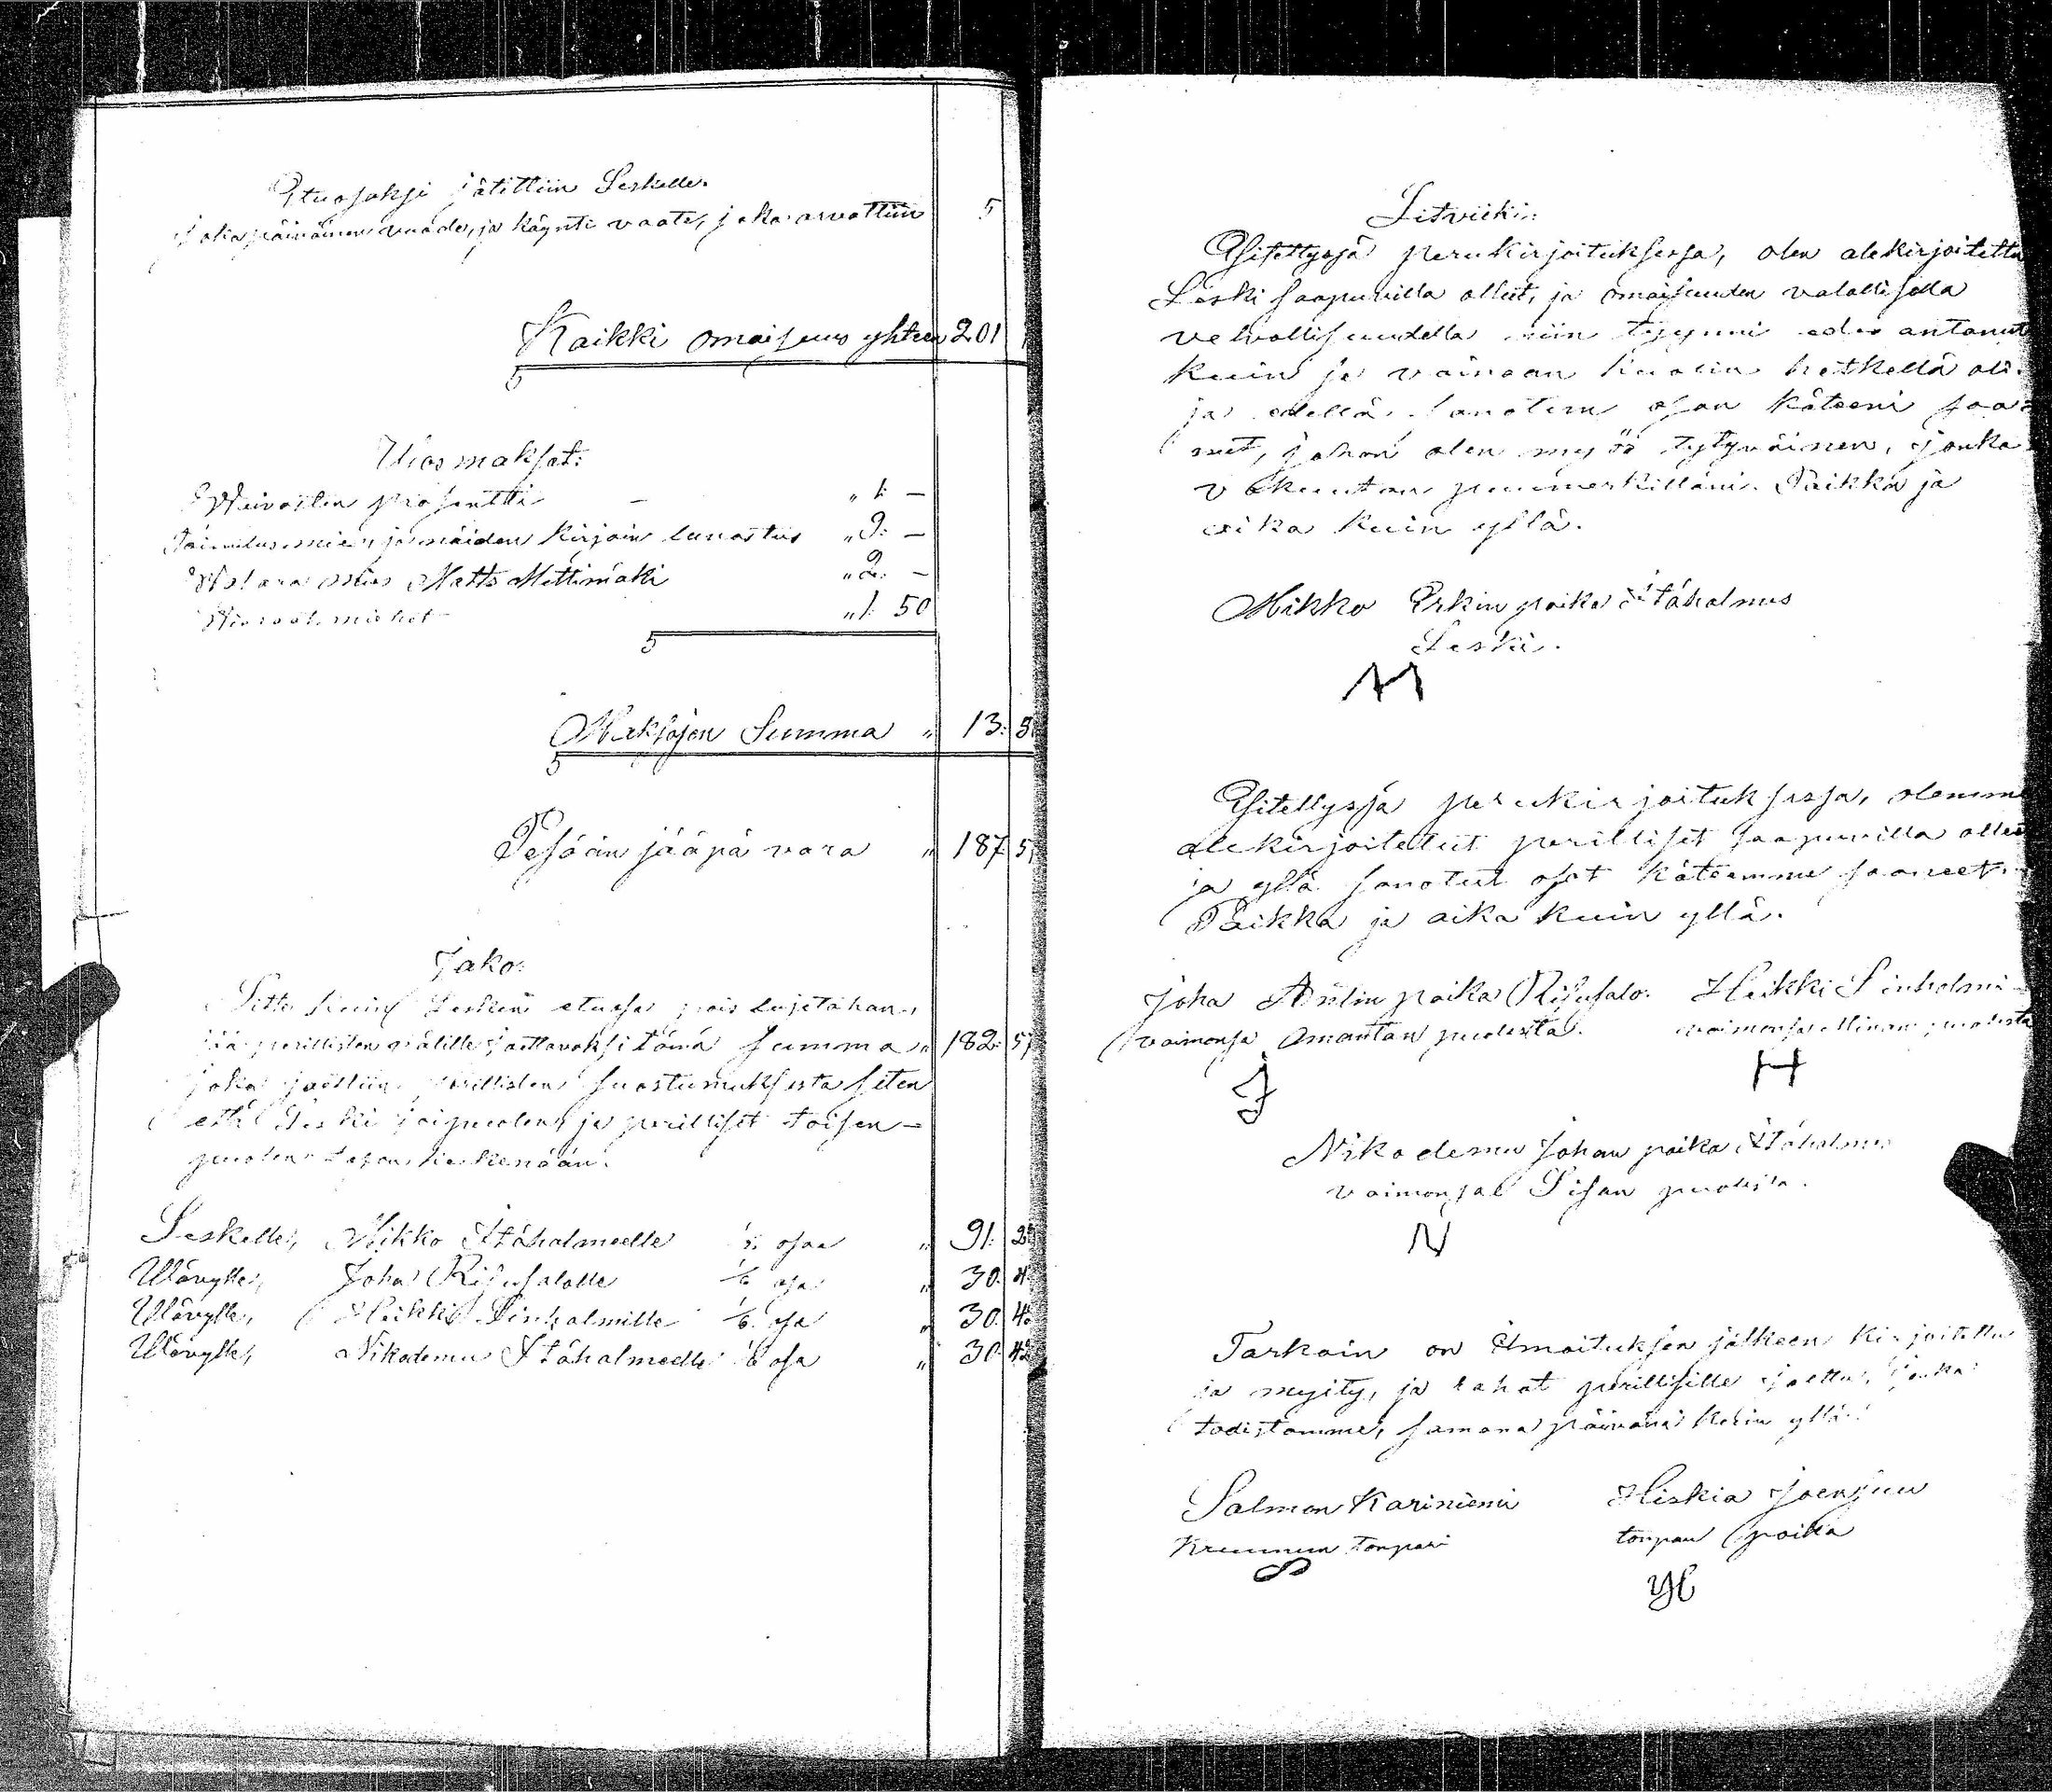 Etuosaksi jätittiin Leskelle.
jokapäiväinen vaade, ja käynti vaate, joka arvattiin 5
Kaikki omaisuus yhteen 201
Ulos maksot:
Waivasten prosentti — „ 1: —
ja näiden kirjain lunastus „ 9: —
mies Matts Mettimäki „ 2: —
miehet „ 1: 50
Maksojen Summa „ 13: 5
Pesään jääpä vara „ 187 5
Jako:
Sitte kuin Lesken etuosa pois lujetahan,
jää perillisten välille jaettavaksi tämä summa „ 182: 5
joka jaettiin perillisten suostumuksesta siten
että Leski sai puolen ja perilliset toisen
puolen keskenään.
Leskelle, Mikko Ståhalmeelle ½ osaa „ 91: 2
Wävylle, Joha Risusalolle 1/6 osa „ 30. 4
Wävylle, Heikki Sinhalmille 1/6 osa „ 30. 4
Wävylle, Nikodemu Ståhalmeelle 1/6 osa „ 30. 4
Sitviiki:
Esitettyssä perukirjoituksessa, olen alekirjoitettu
Leski saapuvilla ollut, ja omaisuuden valallisella
velvollisuudella niin tyynni edes antanut
kuin se vainaan kuolin hetkellä oli.
ja edellä sanotun osan käteeni saa=
nut, johon olen myös tytyväinen, jonka
vakuutan puumerkilläni. Paikka ja
aika kuin yllä.
Mikko Erkin poika Ståhalmus
Leski.
M
Esitettyssä perukirjoituksessa, olemme
alekirjoitetut perilliset saapuvilla olleet
ja yllä sanotut osat käteemme saaneet.
Paikka ja aika kuin yllä.
Joha poika Risusalo. Heikki Sinholmi
vaimonsa Amantan puolesta. vaimonsa Minan puolesta
J H
Nikodemu Johan poika Ståhalmus
vaimonsa Lisan puolesta.
N
Tarkoin on ilmoituksen jälkeen kirjoitettu
ja myity, ja rahat perillisille jaettu, jonka
todistamme, samana päivänä kuin yllä.
Salmon Kariniemi Hiskia Joensuu
Kruunun torpari torpan poika
S HJ